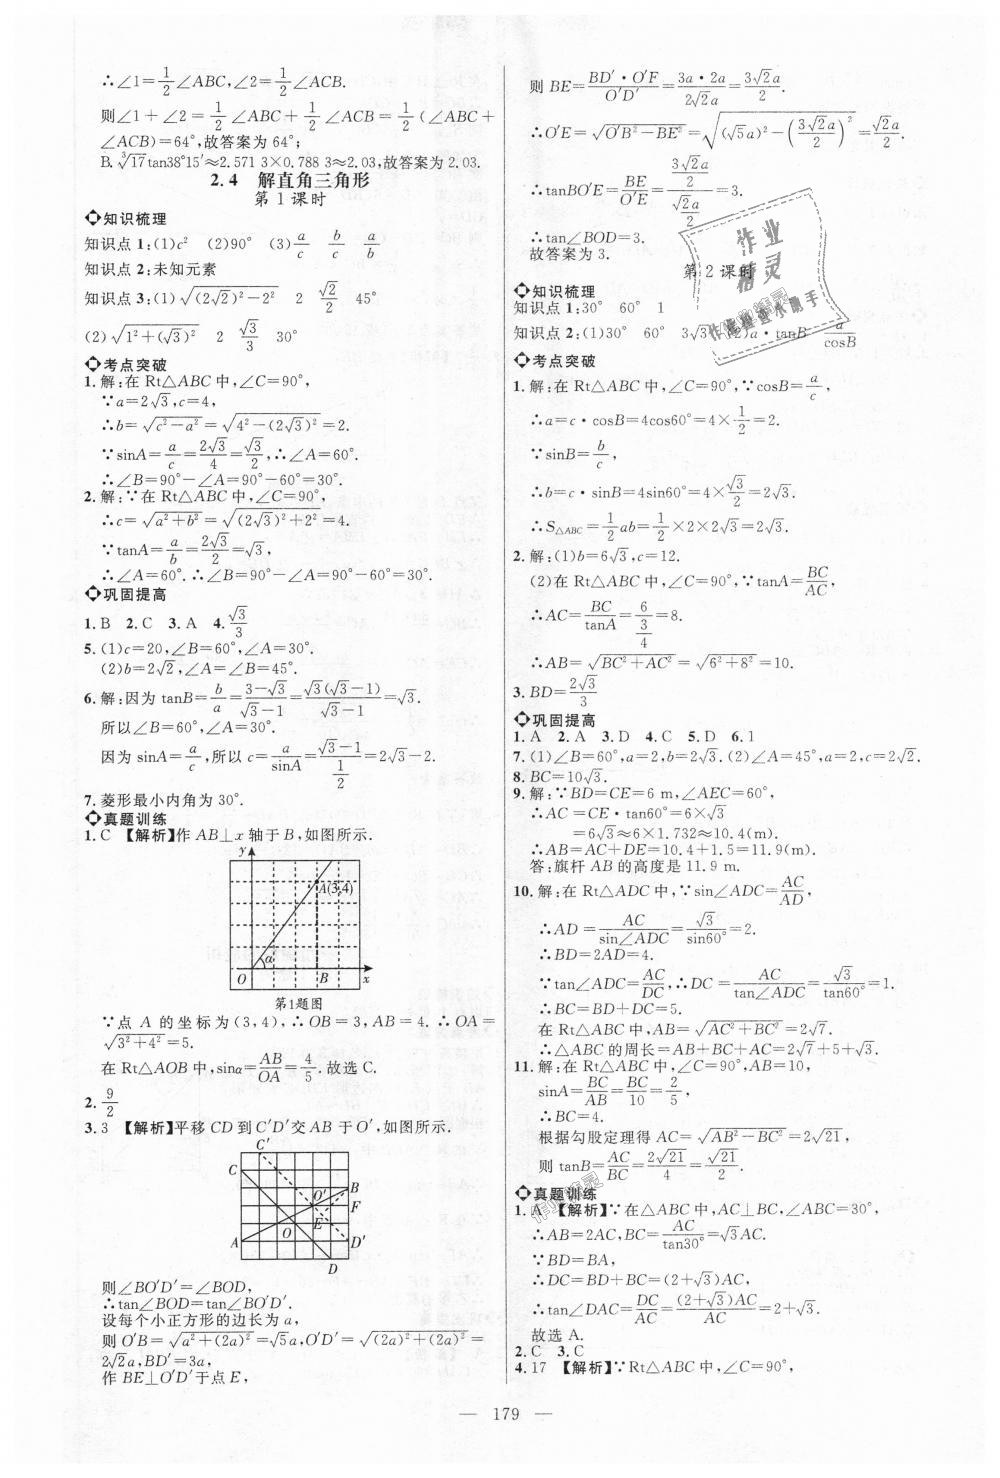 ∴∠1=1/2∠ABC,∠2=1/2∠ACB.
则∠1+∠2=1/2∠ABC+1/2∠ACB=1/2(∠ABC+
∠ACB)=64°,故答案为64°;
B.∛17tan38°15′≈2.571 3×0.788 3≈2.03,故答案为2.03.
2.4 解直角三角形
第1课时
知识梳理
知识点1:(1)c² (2)90° (3)a/c b/c a/b
知识点2:未知元素
知识点3:(1)√((2√2)²-2²) 2 √2/2 45°
(2)√(1²+(√3)²) 2 √3/3 30°
考点突破
1.解:在Rt△ABC中,∠C=90°,
∵a=2√3,c=4,
∴b=√(c²-a²)=√(4²-(2√3)²)=2.
∵sinA=a/c=2√3/4=√3/2,∴∠A=60°.
∴∠B=90°-∠A=90°-60°=30°.
2.解:∵在Rt△ABC中,∠C=90°,
∴c=√(a²+b²)=√((2√3)²+2²)=4.
∵tanA=a/b=2√3/2=√3,
∴∠A=60°.∴∠B=90°-∠A=90°-60°=30°.
巩固提高
1.B 2.C 3.A 4.√3/3
5.(1)c=20,∠B=60°,∠A=30°.
(2)b=2√2,∠A=∠B=45°.
6.解:因为tanB=b/a=(3-√3)/(√3-1)=√3(√3-1)/(√3-1)=√3.
所以∠B=60°,∠A=30°.
因为sinA=a/c,所以c=a/sinA=(√3-1)/(1/2)=2√3-2.
7.菱形最小内角为30°.
真题训练
1.C 【解析】作AB⊥x轴于B,如图所示.
y
A(3,4)
α
O B x
第1题图
∵点A的坐标为(3,4),∴OB=3,AB=4.∴OA=
√(3²+4²)=5.
在Rt△AOB中,sinα=AB/OA=4/5.故选C.
2.9/2
3.3 【解析】平移CD到C′D′交AB于O′,如图所示.
C′
C
O′ B
F
E
O
A D′
D
则∠BO′D′=∠BOD,
∴tan∠BOD=tan∠BO′D′.
设每个小正方形的边长为a,
则O′B=√(a²+(2a)²)=√5a,O′D′=√((2a)²+(2a)²)=
2√2a,BD′=3a,
作BE⊥O′D′于点E,
则BE=BD′·O′F/O′D′=3a·2a/2√2a=3√2a/2.
∴O′E=√(O′B²-BE²)=√((√5a)²-(3√2a/2)²)=√2a/2.
∴tanBO′E=BE/O′E=(3√2a/2)/(√2a/2)=3.
∴tan∠BOD=3.
故答案为3.
第2课时
知识梳理
知识点1:30° 60° 1
知识点2:(1)30° 60° 3√3 (2)a·tanB a/cosB
考点突破
1.解:在Rt△ABC中,∠C=90°,∵cosB=a/c,
∴a=c·cosB=4cos60°=4×1/2=2.
∵sinB=b/c,
∴b=c·sinB=4sin60°=4×√3/2=2√3.
∴S△ABC=1/2ab=1/2×2×2√3=2√3.
2.解:(1)b=6√3,c=12.
(2)在Rt△ABC中,∠C=90°,∵tanA=BC/AC,
∴AC=BC/tanA=6/(3/4)=8.
∴AB=√(BC²+AC²)=√(6²+8²)=10.
3.BD=2√3/3
巩固提高
1.A 2.A 3.D 4.C 5.D 6.1
7.(1)∠B=60°,a=2,b=2√3.(2)∠A=45°,a=2,c=2√2.
8.BC=10√3.
9.解:∵BD=CE=6 m,∠AEC=60°,
∴AC=CE·tan60°=6×√3
=6√3≈6×1.732≈10.4(m).
∴AB=AC+DE=10.4+1.5=11.9(m).
答:旗杆AB的高度是11.9 m.
10.解:在Rt△ADC中,∵sin∠ADC=AC/AD,
∴AD=AC/sin∠ADC=√3/sin60°=2.
∴BD=2AD=4.
∵tan∠ADC=AC/DC,∴DC=AC/tan∠ADC=√3/tan60°=1.
∴BC=BD+DC=5.
在Rt△ABC中,AB=√(AC²+BC²)=2√7.
∴△ABC的周长=AB+BC+AC=2√7+5+√3.
11.解:在Rt△ABC中,∠C=90°,AB=10,
sinA=BC/AB=BC/10=2/5,
∴BC=4.
根据勾股定理得AC=√(AB²-BC²)=2√21,
则tanB=AC/BC=2√21/4=√21/2.
真题训练
1.A 【解析】∵在△ABC中,AC⊥BC,∠ABC=30°,
∴AB=2AC,BC=AC/tan30°=√3AC.
∵BD=BA,
∴DC=BD+BC=(2+√3)AC,
∴tan∠DAC=DC/AC=(2+√3)AC/AC=2+√3.
故选A.
2.C 3.C
4.17 【解析】∵Rt△ABC中,∠C=90°,
— 179 —
作业
精灵
作业检查小助手